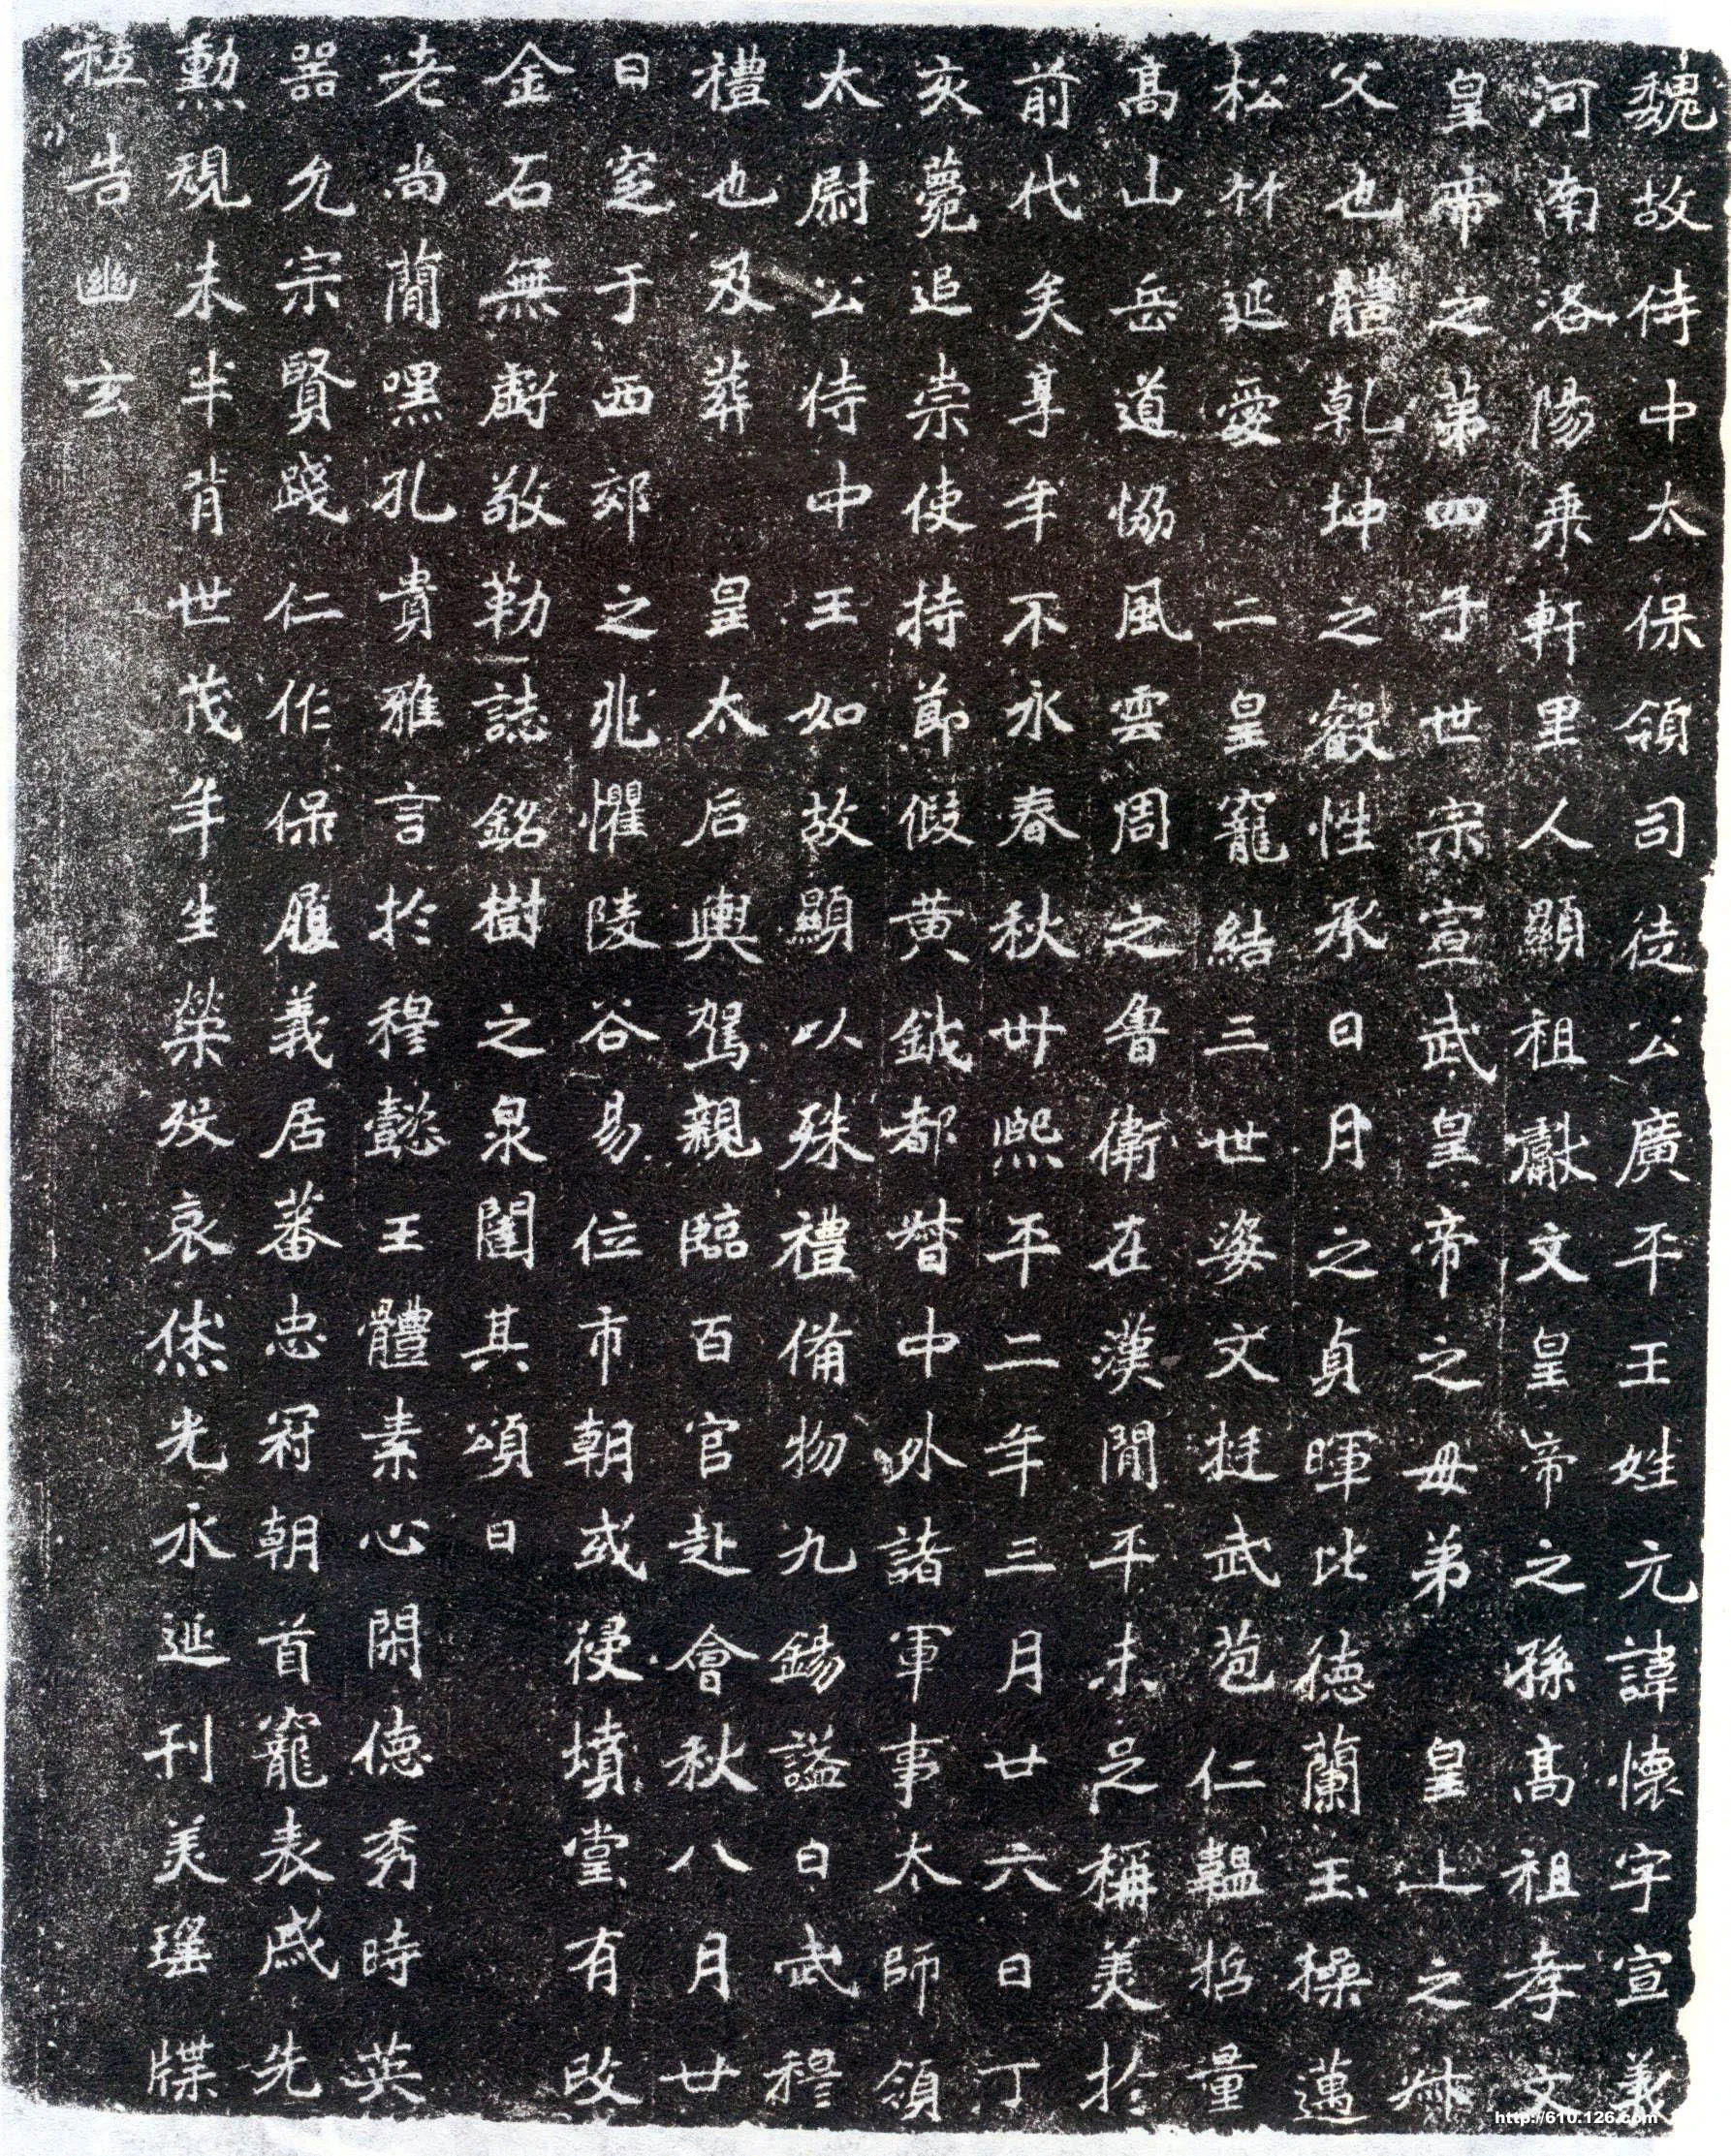 魏故侍中太保領司徒公廣平王姓元諱懷字宣義
河南洛陽乘軒里人顯祖獻文皇帝之孫髙祖孝文
皇帝之第四子世宗宣武皇帝之母弟皇上之䢘
父也體乾坤之叡性承日月之貞暉比德蘭玉操邁
松竹延愛二皇寵結三世姿文挺武苞仁韞哲量
髙山岳道協風雲周之魯衛在漢閒平未足稱美於
前代矣享年不永春秋卅熙平二年三月廿六日丁
亥薨追崇使持節假黄鉞都督中外諸軍事太師領
太尉公侍中王如故顯以殊禮備物九錫謚曰武穆
禮也及葬皇太后輿駕親臨百官赴會秋八月廿
日窆于西郊之兆懼陵谷易位市朝或侵墳堂有改
金石無虧敬勒誌銘樹之泉闥其頌曰
老尚蕳嘿孔貴雅言於穆懿王體素心閑德秀時英
器允宗賢踐仁作保履義居蕃忠冠朝首寵表戚先
勳規未半背世茂年生榮殁哀休光永延刊美瑶牒
祗告幽玄
http://610.126.com